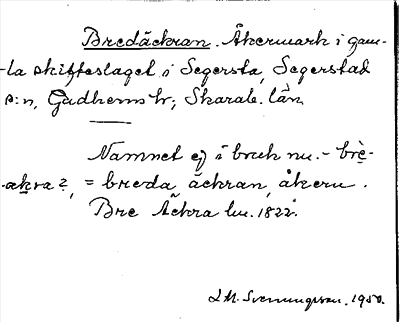 Bredäckran. Åkermark i gam-
-la skifteslaget i Segersta, Segerstad
s:n, Gudhems hr; Skarab. län
Namnet ej i bruk nu. - brè-
-akra 2, = breda äckran, åkern.
Bre Äckra lm. 1822.
L M. Svenungsson. 1950.